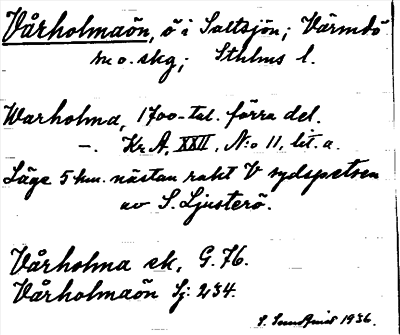 Vårholmaön, ö i Saltsjön; Värmdö
m.o. skg; Sthlms l.
Warholma, 1700-tal. förra del.
—. Kr. A. XXII, N:o 11, lit. a.
Läge 5 km. nästan rakt V sydspetsen
av S. Ljusterö.
Vårholma ek, G. 76.
Vårholmaön Sj: 234.
S. 1936.